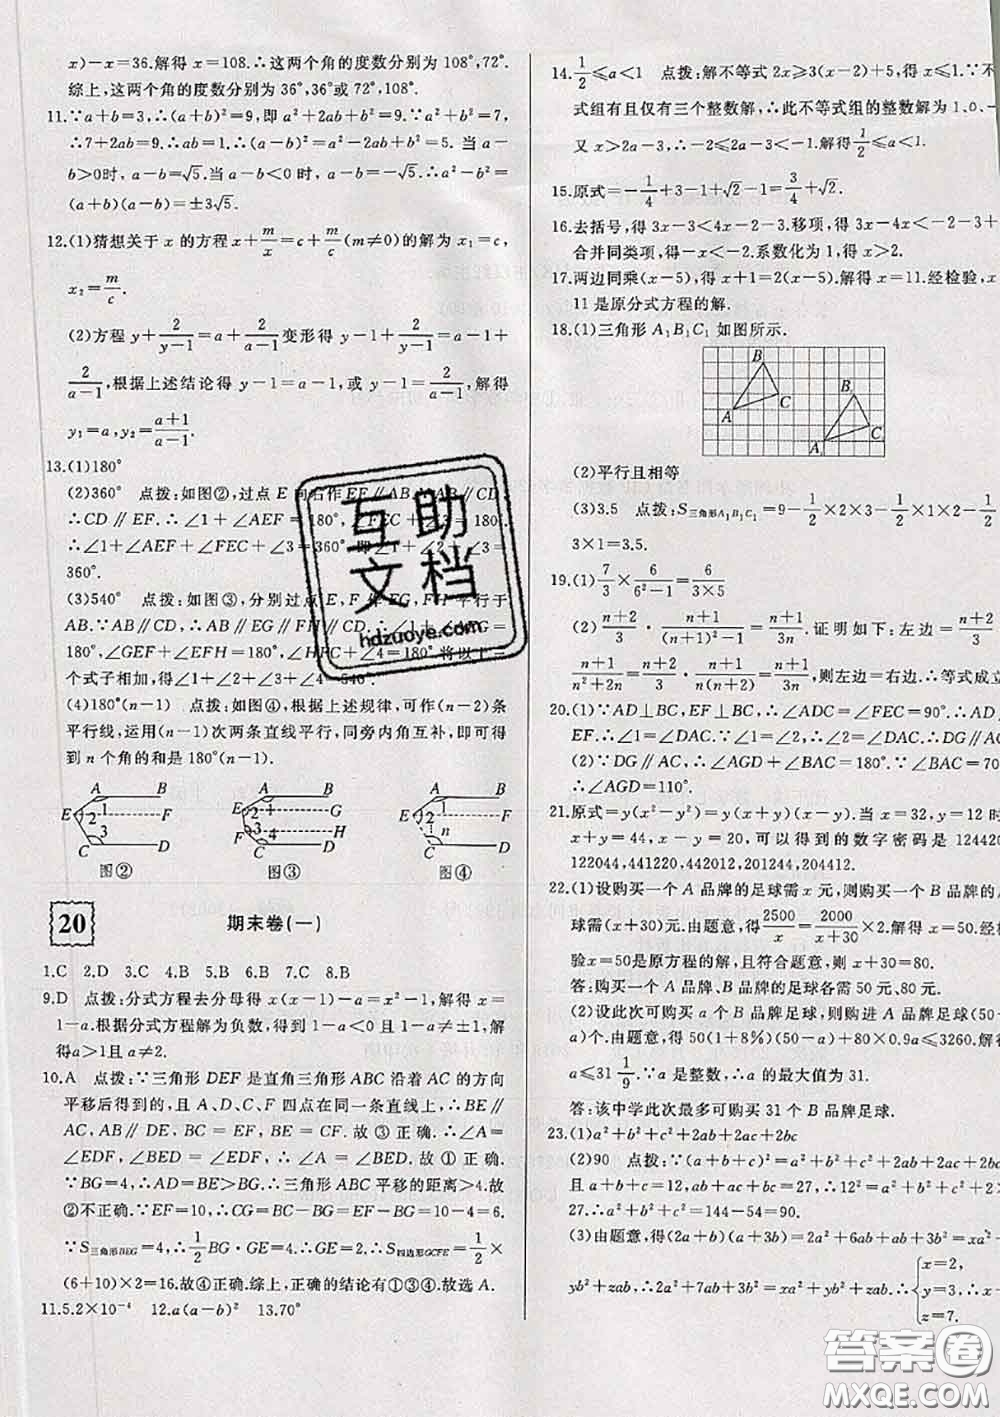 x)-x=36.解得 x=108.∴这两个角的度数分别为 108°,72°.
综上,这两个角的度数分别为 36°,36°或 72°,108°.
11.∵a+b=3,∴(a+b)²=9,即 a²+2ab+b²=9.∵a²+b²=7,
∴7+2ab=9.∴ab=1.∴(a-b)²=a²-2ab+b²=5.当 a-
b>0时,a-b=√5.当 a-b<0 时,a-b=-√5.∴a²-b²=
(a+b)(a-b)=±3√5.
12.(1)猜想关于 x 的方程 x+m/x=c+m/c(m≠0)的解为 x₁=c,
x₂=m/c.
(2)方程 y+2/(y-1)=a+2/(a-1)变形得 y-1+2/(y-1)=a-1+
2/(a-1),根据上述结论得 y-1=a-1,或 y-1=2/(a-1),解得
y₁=a,y₂=(a+1)/(a-1).
13.(1)180°
(2)360° 点拨:如图②,过点 E 向右作 EF∥AB.∵AB∥CD,
∴CD∥EF.∴∠1+∠AEF=180°,∠FEC+∠3=
180°.∴∠1+∠AEF+∠FEC+∠3=360°.即∠1+∠2+∠3=
360°.
(3)540° 点拨:如图③,分别过点 E,F 作 EG,FH 平行于
AB.∵AB∥CD,∴AB∥EG∥FH∥CD.∴∠1+∠AEG=
180°,∠GEF+∠EFH=180°,∠HFC+∠4=180°.将以上三
个式子相加,得∠1+∠2+∠3+∠4=540°.
(4)180°(n-1) 点拨:如图④,根据上述规律,可作(n-2)条
平行线,运用(n-1)次两条直线平行,同旁内角互补,即可得
到 n 个角的和是 180°(n-1).
A B E 1 2 F 3 C D
图②
A B E 1 2 G F 3 4 H C D
图③
A B E 1 2 F n C D
图④
20 期末卷(一)
1.C 2.D 3.C 4.B 5.B 6.B 7.C 8.B
9.D 点拨:分式方程去分母得 x(x-1)-a=x²-1,解得 x=
1-a.根据分式方程解为负数,得到 1-a<0 且 1-a≠±1,解
得a>1且 a≠2.
10.A 点拨:∵三角形 DEF 是直角三角形 ABC 沿着 AC 的方向
平移后得到的,且 A、D、C、F 四点在同一条直线上,∴BE∥
AC,AB∥DE,BC=EF,BE=CF.故③正确.∴∠A=
∠EDF,∠BED=∠EDF.∴∠A=∠BED.故①正确.
∵BG=4,∴AD=BE>BG.∴三角形 ABC 平移的距离>4.故
②不正确.∵EF=10,∴CG=BC-BG=EF-BG=10-4=6.
∵S三角形BEG=4,∴1/2BG·GE=4.∴GE=2.∴S四边形GCFE=1/2×
(6+10)×2=16.故④正确.综上,正确的结论有①③④.故选 A.
11.5.2×10⁻⁴ 12.a(a-b)² 13.70°
14.1/2≤a<1 点拨:解不等式 2x≥3(x-2)+5,得 x≤1.∵不
式组有且仅有三个整数解,∴此不等式组的整数解为 1.0.-
又 x>2a-3,∴-2≤2a-3<-1.解得1/2≤a<1.
15.原式=-1/4+3-1+√2-1=3/4+√2.
16.去括号,得 3x-3<4x-2-3.移项,得 3x-4x<-2-3+
合并同类项,得-x<-2.系数化为 1,得 x>2.
17.两边同乘(x-5),得 x+1=2(x-5).解得 x=11.经检验,x
11 是原分式方程的解.
18.(1)三角形 A₁B₁C₁ 如图所示.
B B₁ A C C₁ A₁
(2)平行且相等
(3)3.5 点拨:S三角形A₁B₁C₁=9-1/2×2×3-1/2×1×2-1/2
3×1=3.5.
19.(1)7/3×6/(6²-1)=6/(3×5)
(2)(n+2)/3·(n+1)/((n+1)²-1)=(n+1)/3n.证明如下:左边=(n+2)/3
(n+1)/(n²+2n)=(n+2)/3·(n+1)/(n(n+2))=(n+1)/3n=右边.∴等式成立
20.(1)∵AD⊥BC,EF⊥BC,∴∠ADC=∠FEC=90°.∴
EF.∴∠1=∠DAC.∵∠1=∠2,∴∠2=∠DAC.∴
(2)∵DG∥AC,∴∠AGD+∠BAC=180°.∵∠BAC=70
∴∠AGD=110°.
21.原式=y(x²-y²)=y(x+y)(x-y).当 x=32,y=12 时
x+y=44,x-y=20,可以得到的数字密码是 124420
122044,441220,442012,201244,204412.
22.(1)设购买一个 A 品牌的足球需 x 元,则购买一个 B 品牌的足
球需(x+30)元.由题意,得2500/x=2000/(x+30)×2.解得 x=50.经
验x=50是原方程的解,且符合题意,则 x+30=80.
答:购买一个 A 品牌、B 品牌的足球各需 50 元、80 元.
(2)设此次可购买 a 个 B 品牌足球,则购进 A 品牌足球(50-
a)个.由题意,得 50(1+8%)(50-a)+80×0.9a≤3260.解得
a≤31 1/9.∵a 是整数,∴a 的最大值为 31.
答:该中学此次最多可购买 31 个 B 品牌足球.
23.(1)a²+b²+c²+2ab+2ac+2bc
(2)90 点拨:∵(a+b+c)²=a²+b²+c²+2ab+2ac+2b
∴a²+b²+c²=(a+b+c)²-2(ab+ac+bc).∴12²=a²+b²+
27.∴a²+b²+c²=144-54=90.
(3)由题意,得(2a+b)(a+3b)=2a²+6ab+ab+3b²=xa²
yb²+zab.∴2a²+7ab+3b²=xa²+yb²+zab.∴{x=2,
y=3,
z=7.
互助
文档
hdzuoye.com
答案卷
MXQE.COM